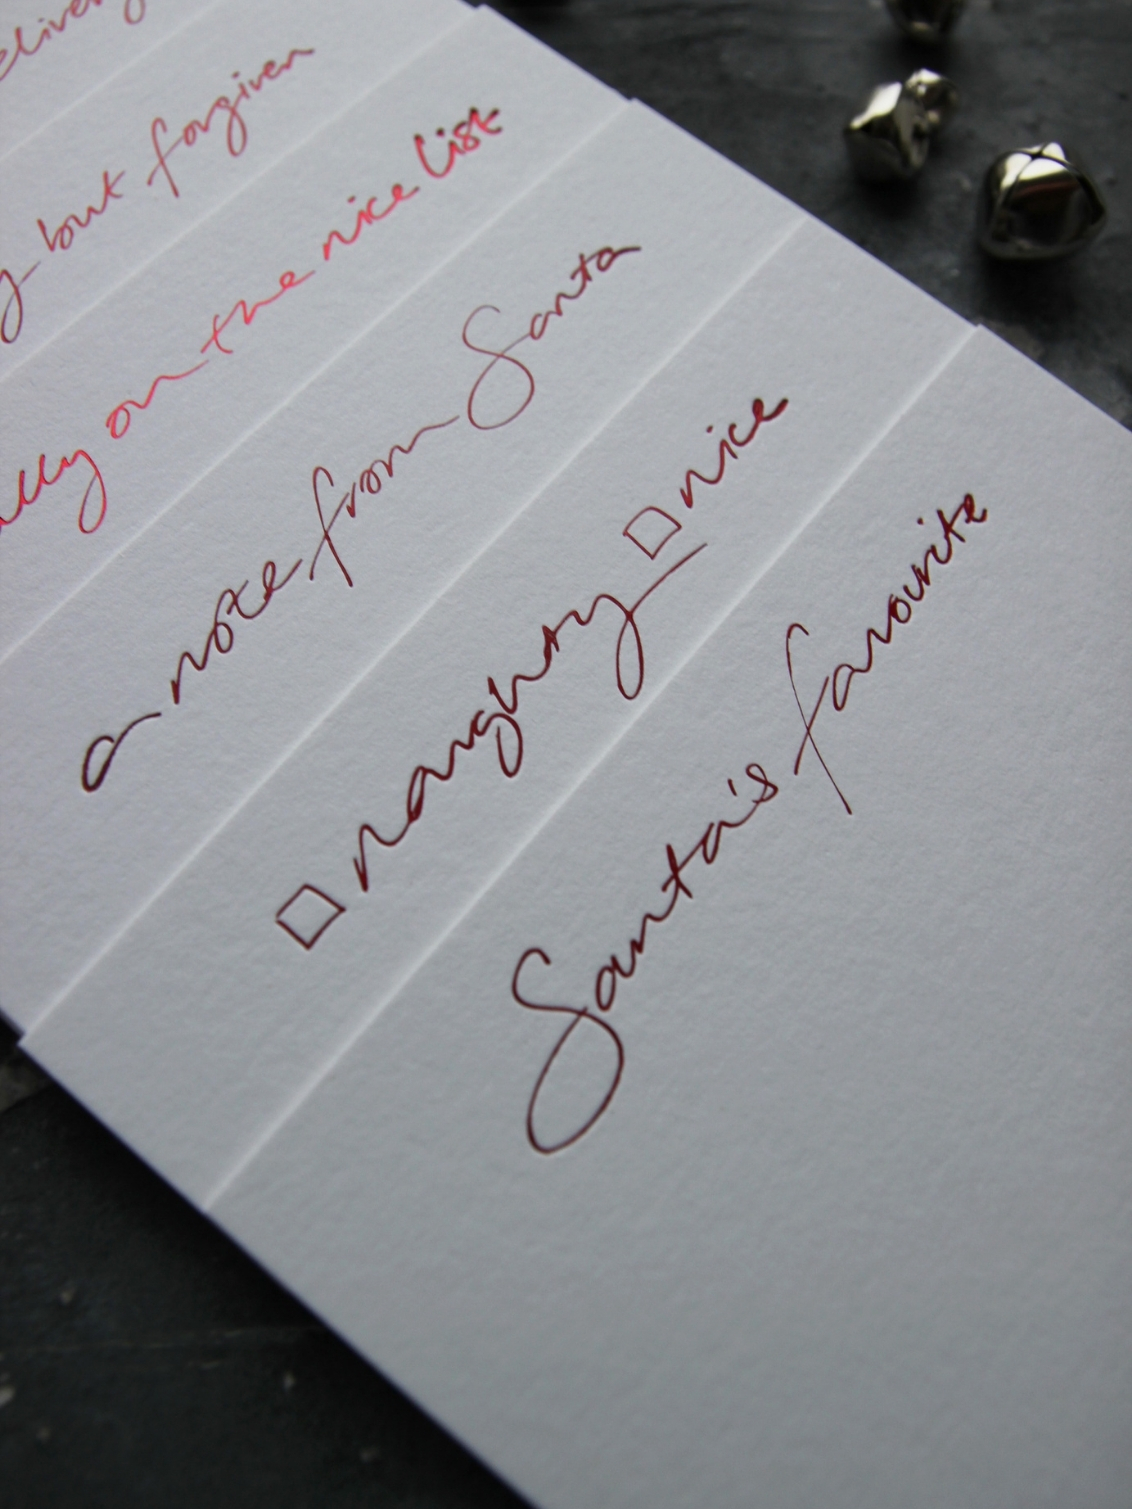 but forgiven
on the nice list
a note from Santa
☐ naughty ☐ nice
Santa's favourite